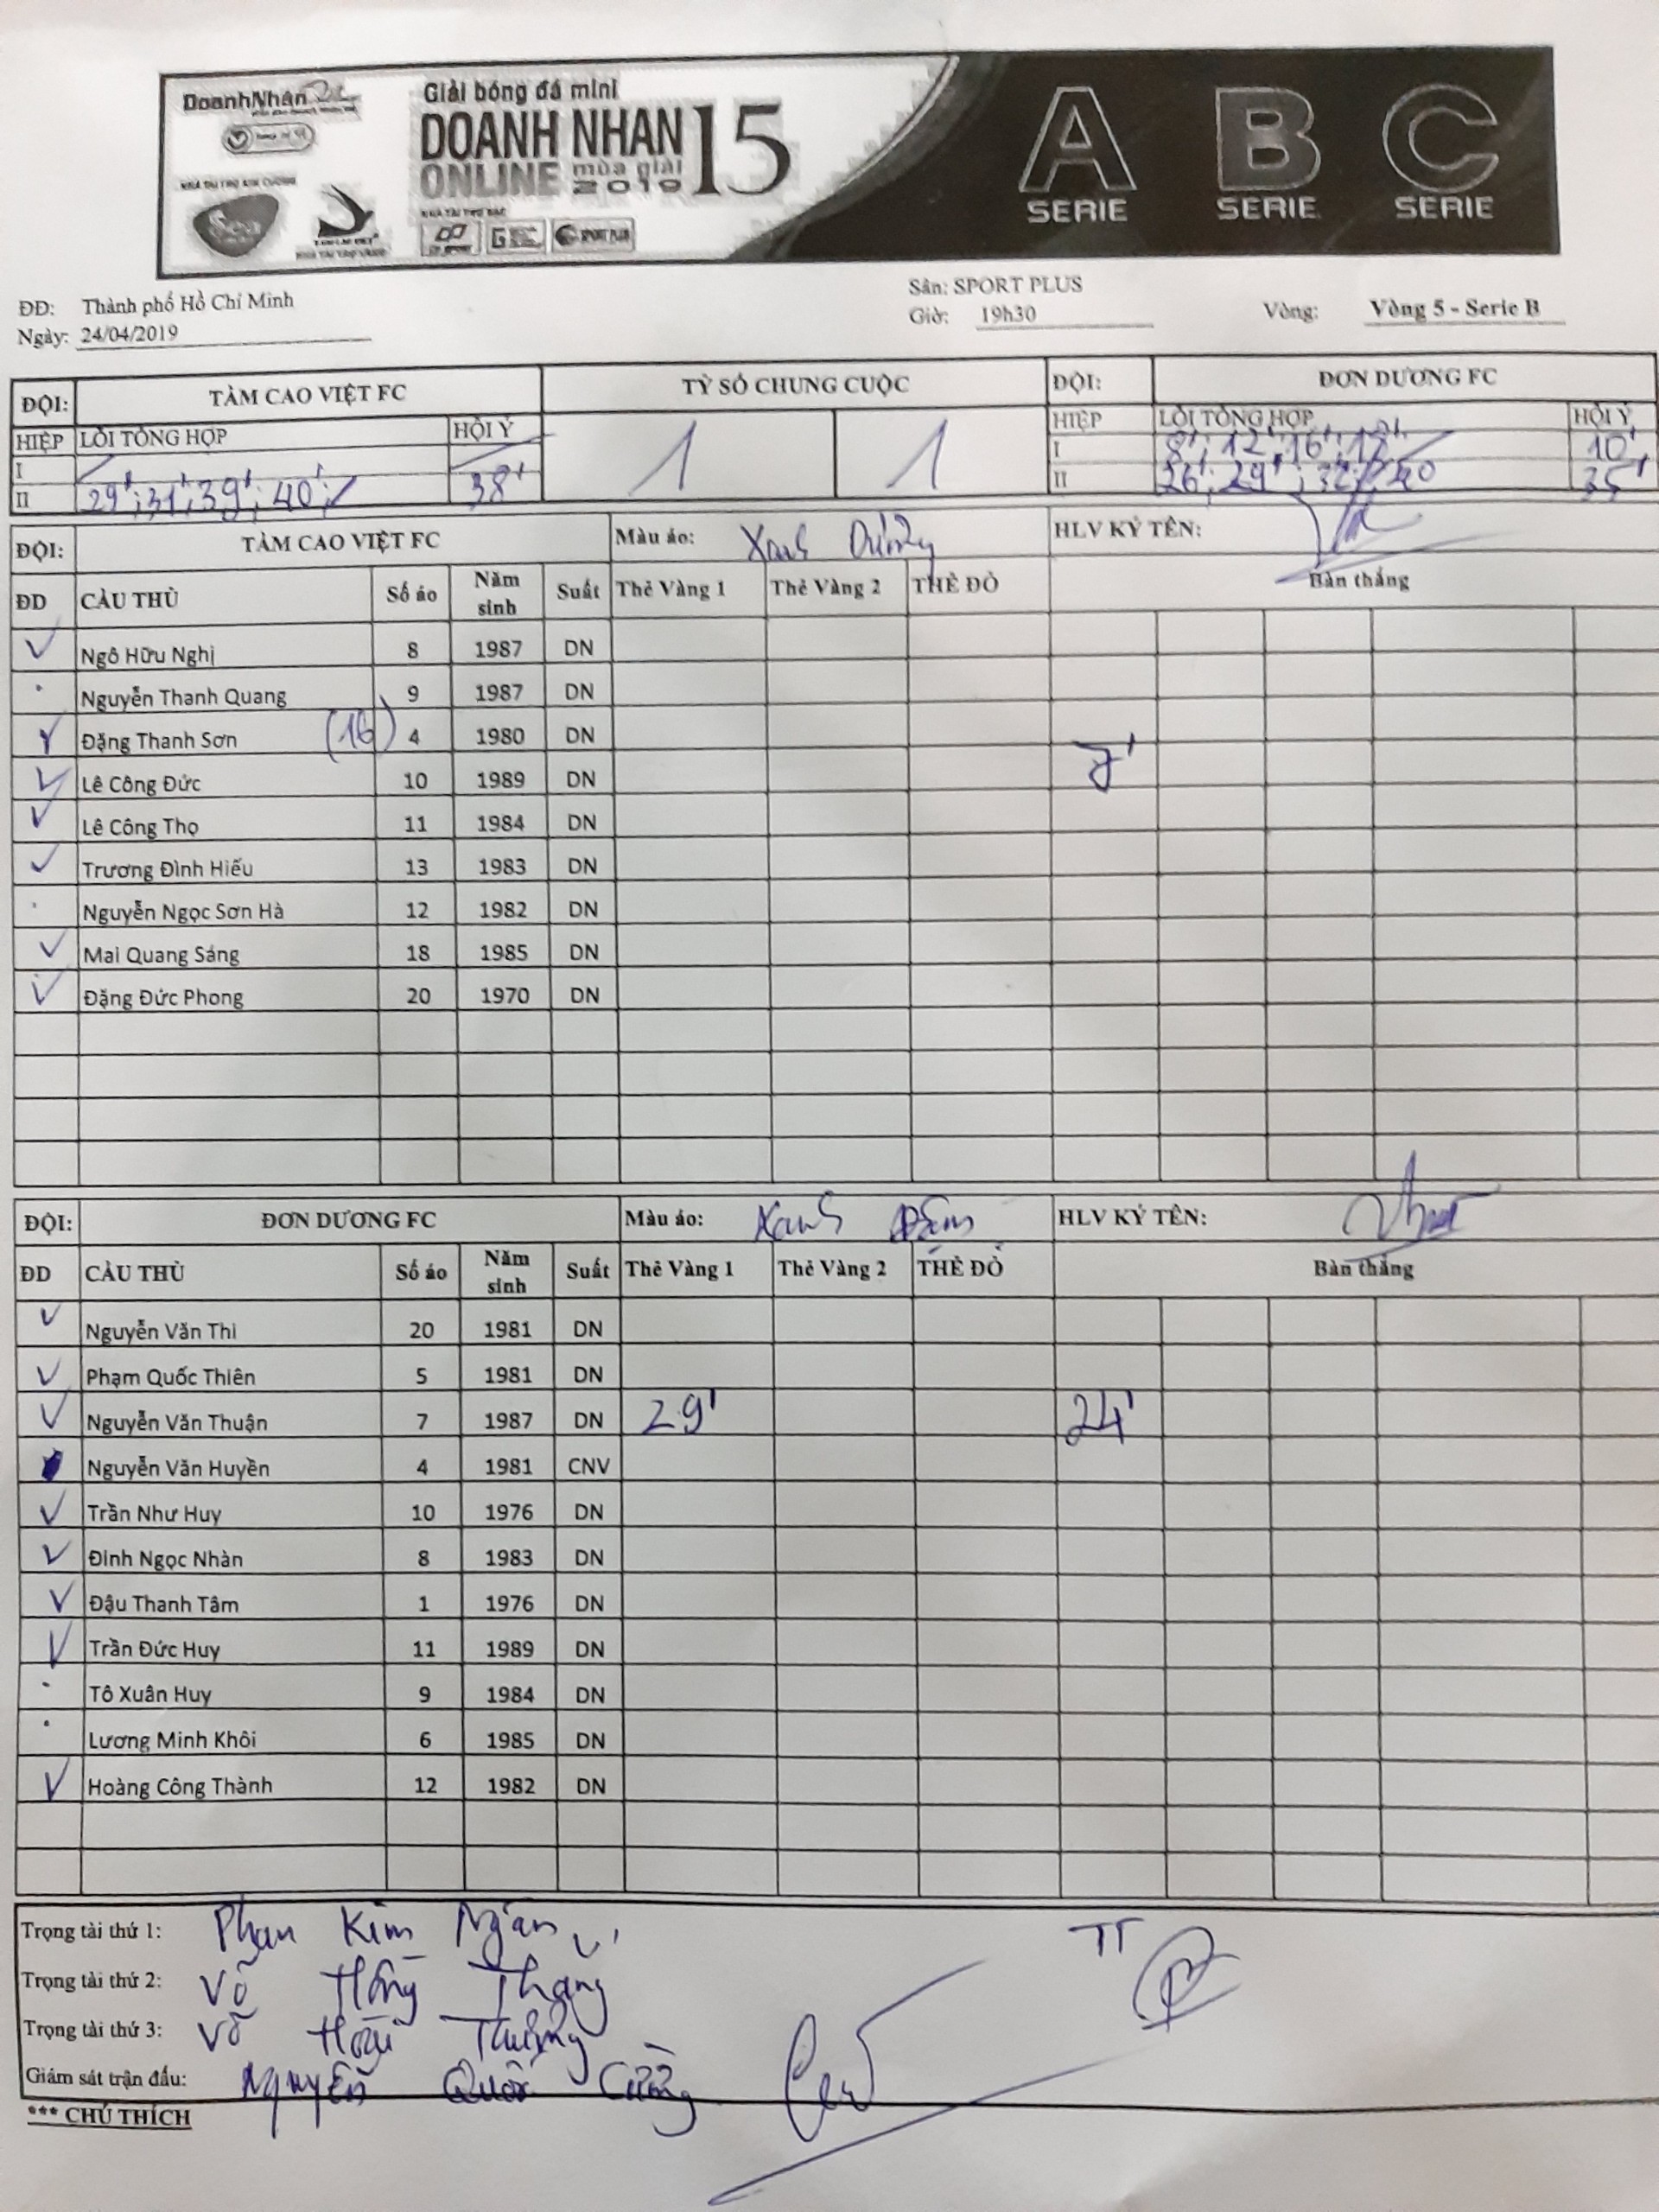 DoanhNhân
Giải bóng đá mini
DOANH NHAN 15
ONLINE mùa giải 2019
NHÀ TÀI TRỢ KIM CƯƠNG
Sea
NHÀ TÀI TRỢ BẠC
SPORT PLUS
A B C
SERIE SERIE SERIE
ĐĐ: Thành phố Hồ Chí Minh Sân: SPORT PLUS
Ngày: 24/04/2019 Giờ: 19h30 Vòng: Vòng 5 - Serie B
ĐỘI: TẦM CAO VIỆT FC TỶ SỐ CHUNG CUỘC ĐỘI: ĐƠN DƯƠNG FC
HIỆP LỖI TỔNG HỢP HỘI Ý 1 1 HIỆP LỖI TỔNG HỢP HỘI Ý
I I 8'; 12'; 16'; 18' 10'
II 29'; 31'; 39'; 40' 38' II 26'; 29'; 32'; 40 35'
ĐỘI: TẦM CAO VIỆT FC Màu áo: Xanh Dương HLV KÝ TÊN:
ĐD CẦU THỦ Số áo Năm sinh Suất Thẻ Vàng 1 Thẻ Vàng 2 THẺ ĐỎ Bàn thắng
Ngô Hữu Nghị 8 1987 DN
Nguyễn Thanh Quang 9 1987 DN
Đặng Thanh Sơn (16) 4 1980 DN
Lê Công Đức 10 1989 DN 7'
Lê Công Thọ 11 1984 DN
Trương Đình Hiếu 13 1983 DN
Nguyễn Ngọc Sơn Hà 12 1982 DN
Mai Quang Sáng 18 1985 DN
Đặng Đức Phong 20 1970 DN
ĐỘI: ĐƠN DƯƠNG FC Màu áo: Xanh Đậm HLV KÝ TÊN:
ĐD CẦU THỦ Số áo Năm sinh Suất Thẻ Vàng 1 Thẻ Vàng 2 THẺ ĐỎ Bàn thắng
Nguyễn Văn Thi 20 1981 DN
Phạm Quốc Thiên 5 1981 DN
Nguyễn Văn Thuận 7 1987 DN 29' 24'
Nguyễn Văn Huyền 4 1981 CNV
Trần Như Huy 10 1976 DN
Đinh Ngọc Nhàn 8 1983 DN
Đậu Thanh Tâm 1 1976 DN
Trần Đức Huy 11 1989 DN
Tô Xuân Huy 9 1984 DN
Lương Minh Khôi 6 1985 DN
Hoàng Công Thành 12 1982 DN
Trọng tài thứ 1: Phan Kim Ngân TT
Trọng tài thứ 2: Võ Hồng Thắng
Trọng tài thứ 3: Võ Hoài Thương
Giám sát trận đấu: Nguyễn Quốc Cường
*** CHÚ THÍCH